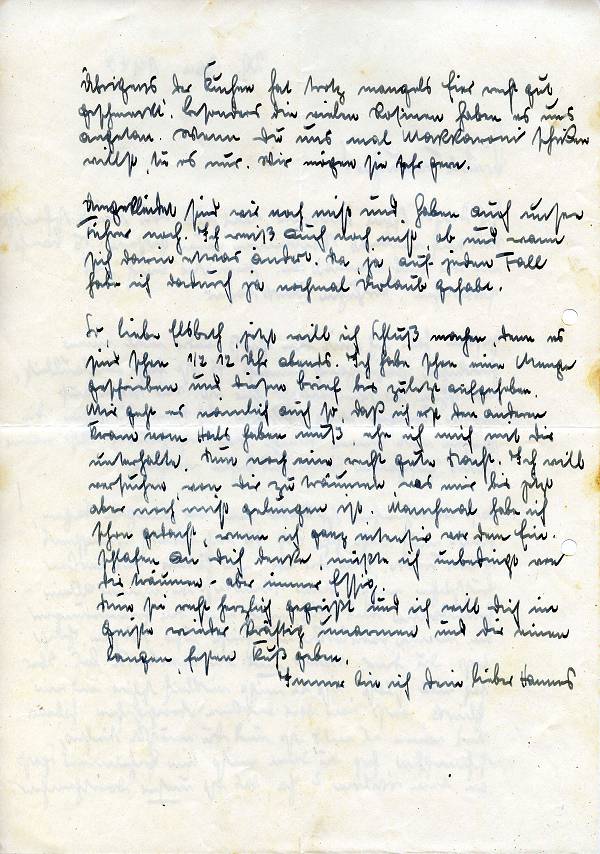 Übrigens der Kuchen hat trotz mangels Eier recht gut
geschmeckt. Besonders die vielen Rosinen haben es uns
angetan. Wenn Du uns mal Makkaroni schicken
willst, tu es nur. Wir mögen sie sehr gern.
sind wir noch nicht und haben auch unsere
noch. Ich weiß auch noch nicht, ob und wann
sich darin etwas ändert. Na, ja auf jeden Fall
habe ich dadurch ja nochmal Urlaub gehabt.
So, liebe Elsbeth jetzt will ich Schluß machen, denn es
sind schon 1/2 12 Uhr abends. Ich habe schon eine Menge
geschrieben und diesen Brief bis zuletzt aufgehoben.
Mir geht es nämlich auch so, daß ich erst den anderen
Kram vom Hals haben muß, ehe ich mich mit Dir
unterhalte. Nun noch eine recht gute Nacht. Ich will
versuchen, von Dir zu träumen was mir bis jetzt
aber noch nicht gelungen ist. Manchmal habe ich
schon gedacht, wenn ich ganz intensiv vor dem Ein-
schlafen an Dich denke, müßte ich unbedingt von
Dir träumen - aber immer Essig.
Nun sei recht herzlich gegrüßt und ich will Dich im
Geiste wieder kräftig umarmen und Dir einen
langen, festen Kuß geben.
Immer bin ich Dein lieber Hannes